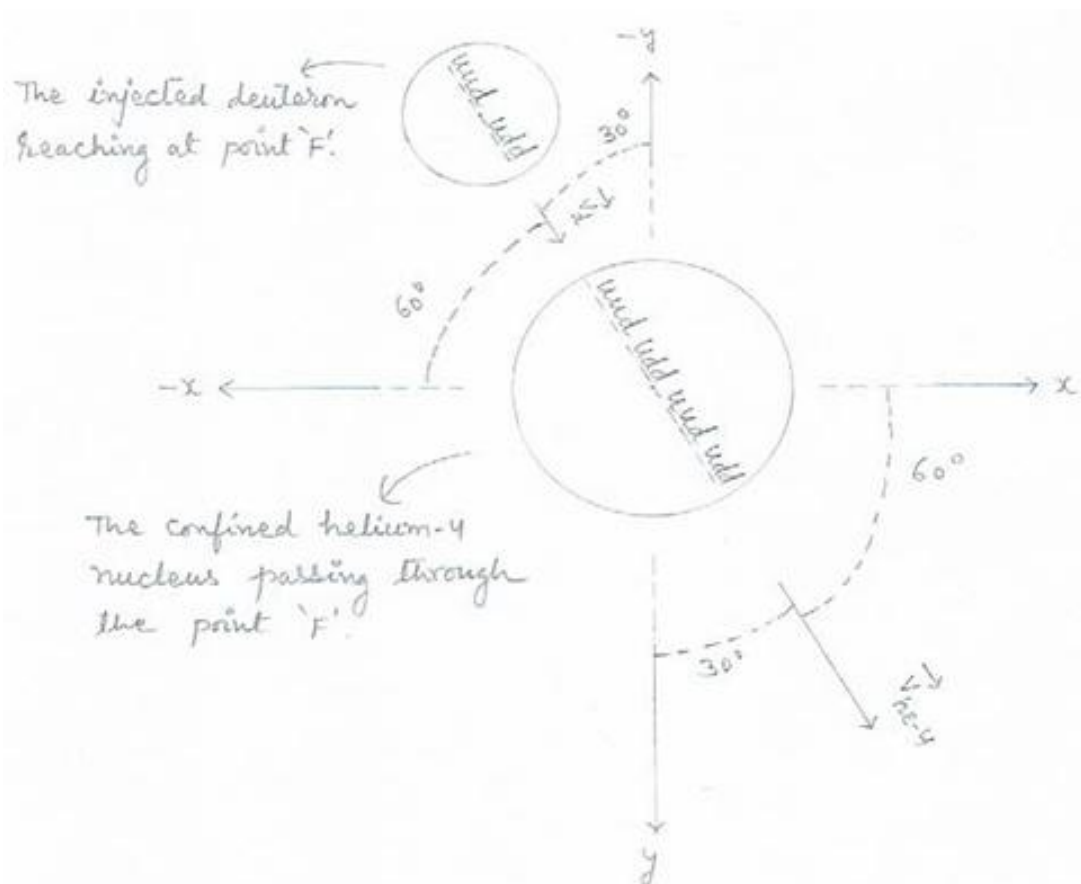 -y
The injected deuteron
reaching at point 'F'.
uud udd
30°
Vd
60°
uud udd uud udd
-x
x
60°
The confined helium-4
nucleus passing through
the point 'F'.
30°
Vhe-4
y